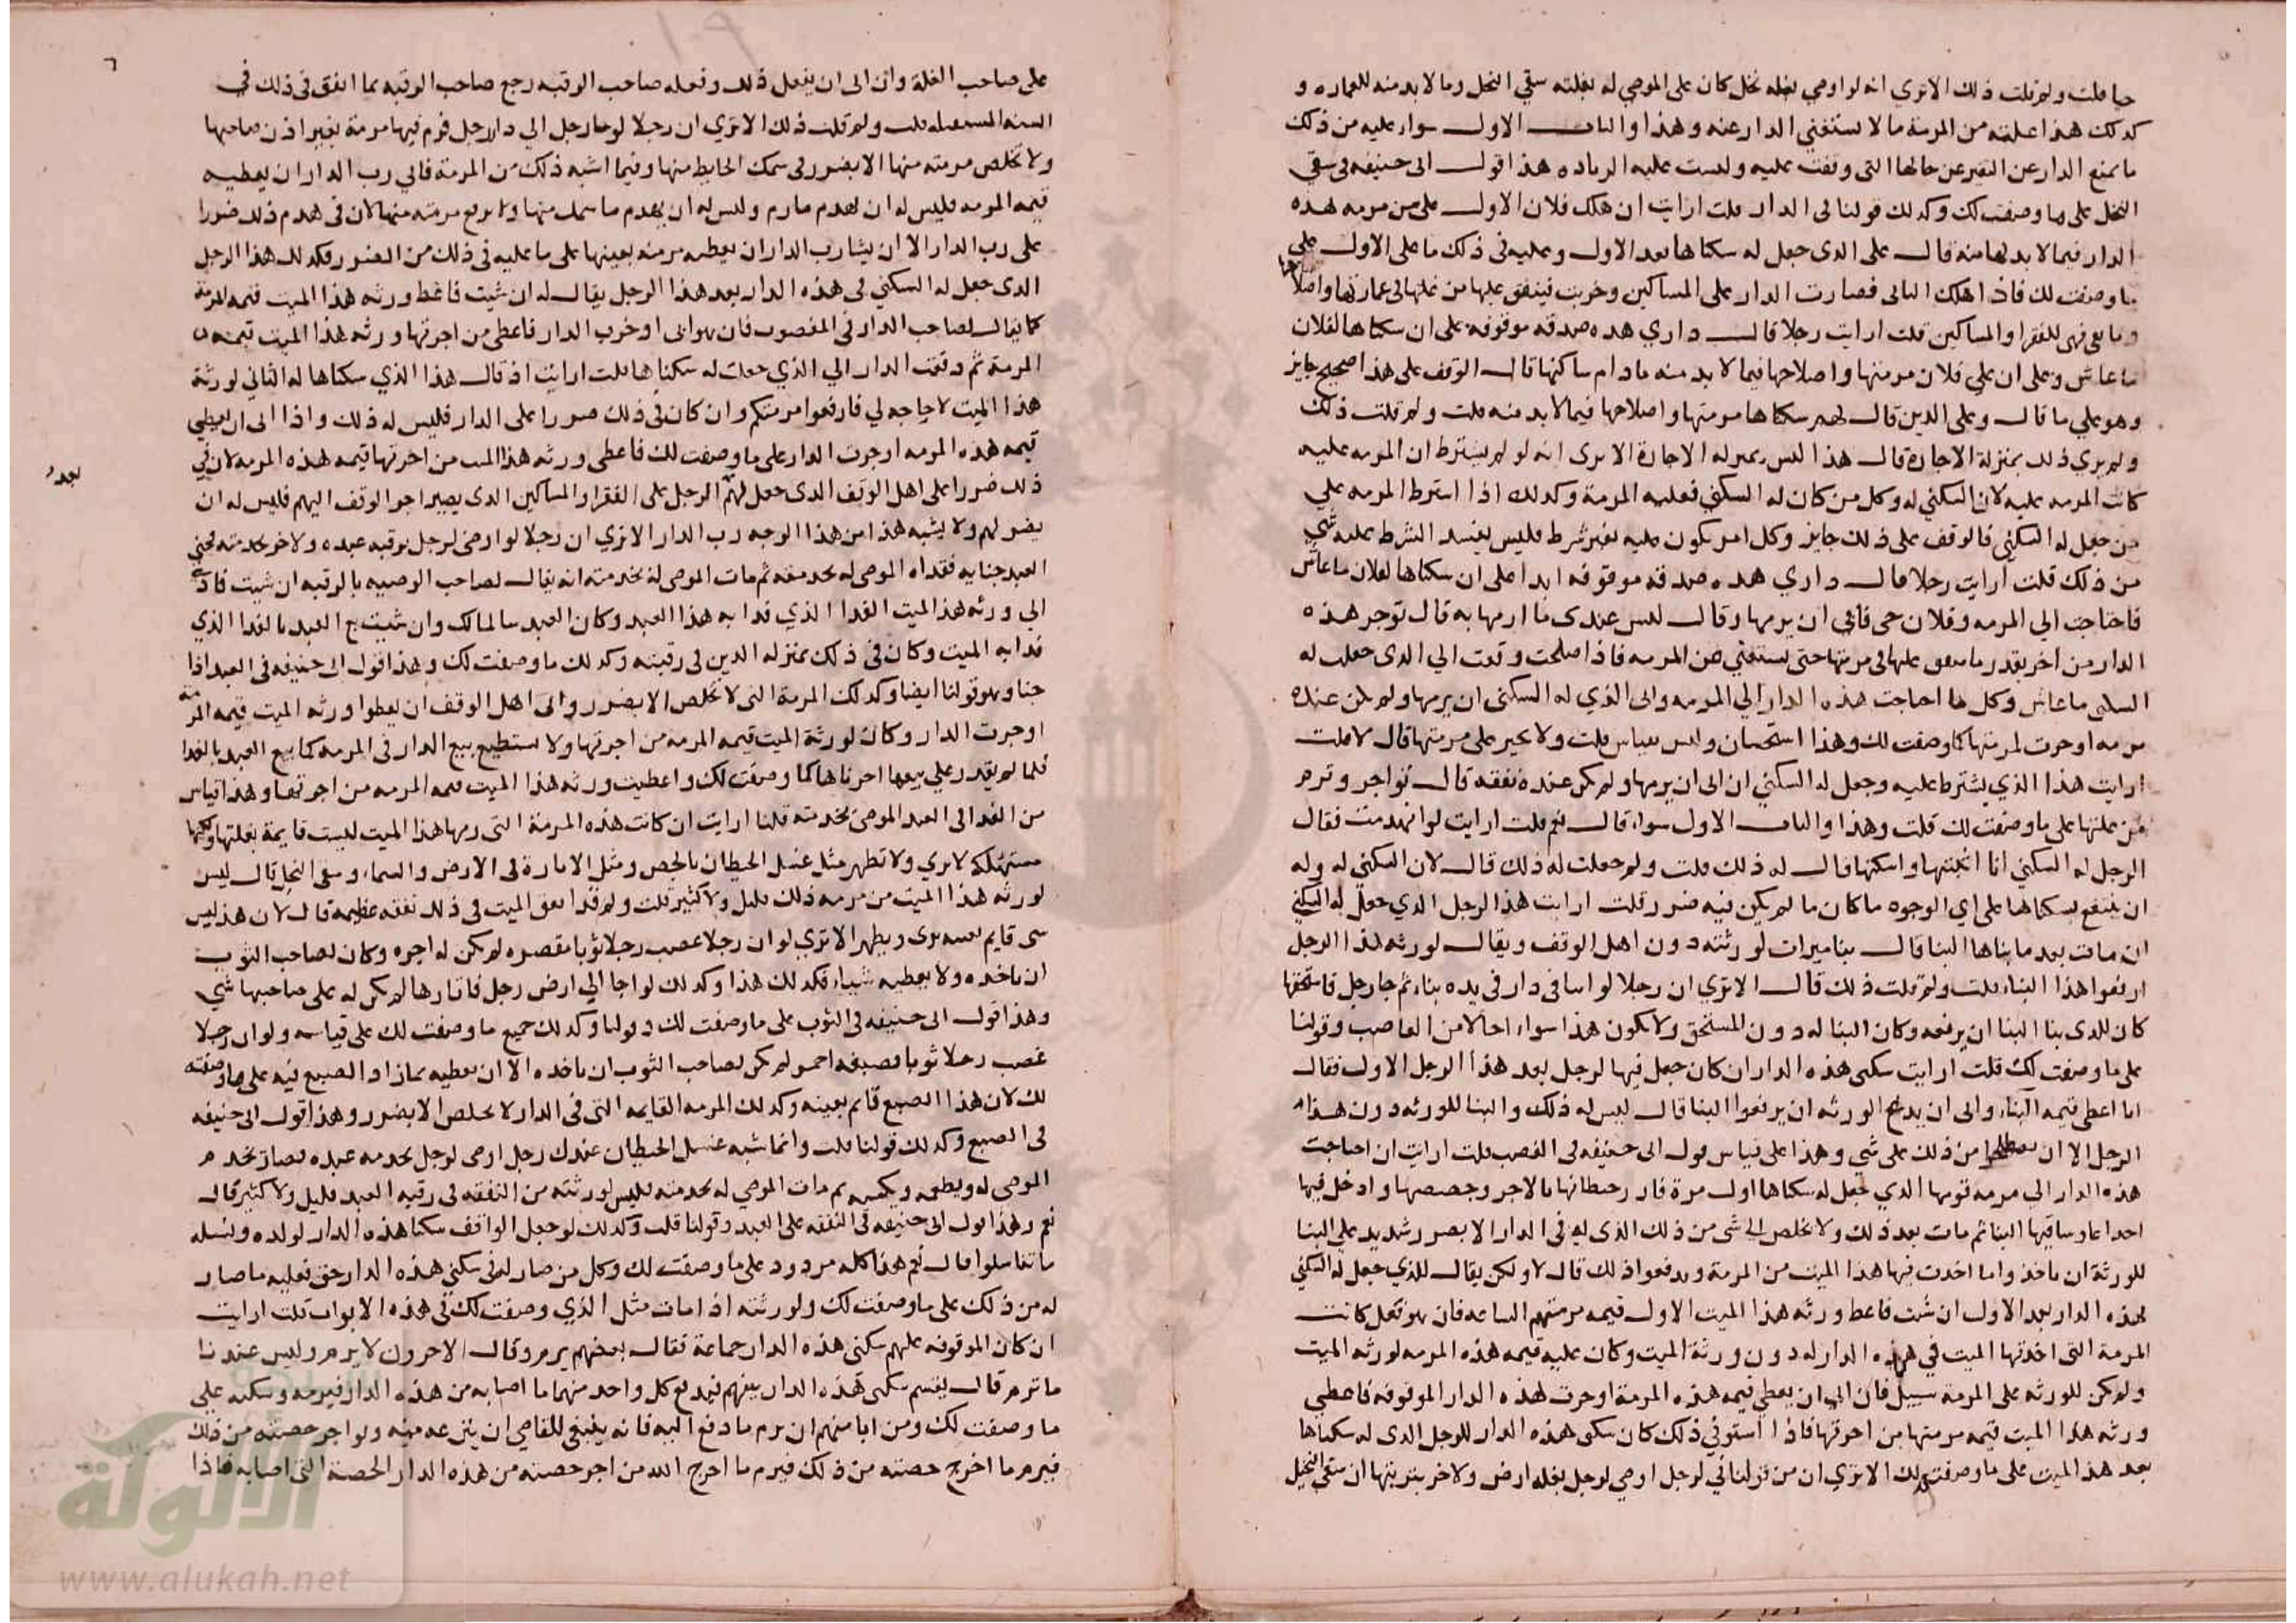 حيا قلت ولم قلت ذلك الا تري انه لو اوصي بغله نخل كان على الموصي له بغلته سقي النخل وما لا بد منه للعماره و
كدلك هذا عليه من المرمة ما لا ستغني الدار عنه وهذا والباب الاول سواء عليه من ذلك
ما يمنع الدار عن التغير عن حالها التي وقفت عليه وليست عليه الزياده هذا قول ابى حنيفه في سقي
النخل على ما وصفت لك وكدلك قولنا في الدار قلت ارايت ان هلك فلان الاول على من مرمه هذه
الدار فيما لا بد لها منه قال على الدى جعل له سكناها بعد الاول وعليه في ذلك ما على الاول على
ما وصفت لك فاذا هلك الثاني فصارت الدار على المساكين وخربت فينفق عليها من غلتها في عمارتها واصلاحها
وما بقى فهى للفقرا والمساكين قلت ارايت رجلا قال داري هده صدقه موقوفه على ان سكناها لفلان
ما عاش وعلى ان على فلان مرمتها واصلاحها فيما لا بد منه ما دام ساكنها قال الوقف على هذا صحيح جايز
وهو علي ما قال وعلى الدين قال لهم سكناها مرمتها واصلاحها فيما لا بد منه قلت ولم قلت ذلك
ولم يري ذلك بمنزلة الاجارة قال هذا ليس بمنزله الاجارة الا يرى انه لو لم يشترط ان المرمه عليه
كانت المرمه عليه لان السكني له وكل من كان له السكني فعليه المرمة وكدلك اذا اشترط المرمه علي
من جعل له السكني فالوقف على ذلك جايز وكل امر يكون عليه بغير شرط فليس يفسد الشرط عليه شي
من ذلك قلت ارايت رجلا قال داري هده صدقه موقوفه ابدا على ان سكناها لفلان ما عاش
فاحتاجت الي المرمه وفلان حي فابى ان يرمها وقال ليس عندى ما ارمها به قال توجر هذه
الدار من اخر بقدر ما ينفق عليها في مرمتها حتى يستغني عن المرمه فاذا صلحت وقعت الي الدى جعلت له
السكنى ما عاش وكل ما احتاجت هذه الدار الي المرمه وابى الذي له السكنى ان يرمها ولم يكن عنده
مرمه اوجرت لمرمتها كما وصفت لك وهذا استحسان وليس بقياس قلت ولا يجبر على مرمتها قال لا قلت
ارايت هذا الذي يشترط عليه وجعل له السكني ان ابى ان يرمها ولم يكن عنده نفقه قال تواجر وترم
من غلتها على ما وصفت لك قلت وهذا والباب الاول سواء قال نعم قلت ارايت لو انهدمت فقال
الرجل له السكني انا ابنيها واسكنها قال له ذلك قلت ولم جعلت له ذلك قال لان السكني له وله
ان ينتفع بسكناها على اي الوجوه ما كان ما لم يكن فيه ضرر قلت ارايت هذا الرجل الذي جعل له السكني
ان مات بعد ما بناها البنا قال بنا ميراث لورثته دون اهل الوقف ويقال لورثه هذا الرجل
ارفعوا هذا البناء قلت ولم قلت ذلك قال الا تري ان رجلا لو ابنا في دار في يده بناء ثم جا رجل فاستحقها
كان للدى بنا البنا ان يرفعه وكان البنا له دون المستحق ولا يكون هذا سواء احالا من الغاصب وقولنا
على ما وصفت لك قلت ارايت سكنى هذه الدار ان كان جعل فيها لرجل بعد هذا الرجل الاول فقال
انا اعطى قيمه البناء وابى ان يدع الورثه ان يرفعوا البنا قال ليس له ذلك والبنا للورثه دون هذا
الرجل الا ان يصطلحوا من ذلك على شي وهذا على قياس قول ابى حنيفه في الغصب قلت ارايت ان احتاجت
هذه الدار الي مرمه فرمها الذي جعل له سكناها اول مرة فازر حيطانها بالاجر وجصصها وادخل فيها
اجذاعا وساقيها البنا ثم مات بعد ذلك ولا يخلص الى شى من ذلك الذى له في الدار الا بضرر شديد على البنا
للورثة ان ياخذوا ما احدث فيها هذا الميت من المرمة ويدفعوا ذلك قال لا ولكن يقال للذي جعل له السكني
لهذه الدار بعد الاول ان شت فاعط ورثه هذا الميت الاول قيمه مرمتهم الساعه فان هو فعل كانت
المرمة التى احدثها الميت في هذه الدار له دون ورثة الميت وكان عليه قيمه هذه المرمه لورثه الميت
ولم يكن للورثه على المرمة سبيل فان ابى ان يعطي قيمه هذه المرمة اوجرت هذه الدار الموقوفه فاعطي
ورثه هذا الميت قيمه مرمتها من اجرتها فاذا استوفي ذلك كان سكنى هذه الدار للرجل الدى له سكناها
بعد هذا الميت على ما وصفت لك الا تري ان من قولنا في لرجل اوصي لرجل بغله ارض ولاخر بتربتها ان سقي النخيل
٦
على صاحب الغلة وان ابى ان يفعل ذلك وفعله صاحب الرقبه رجع صاحب الرقبه بما انفق في ذلك في
السنه المستقبله قلت ولم قلت ذلك الا تري ان رجلا لو جا رجل الي دار رجل فرم فيها مرمة بغير اذن صاحبها
ولا تخلص مرمته منها الا بضرر في سمك الحايط منها وفيما اشبه ذلك من المرمة فابي رب الدار ان يعطيه
قيمه المرمه فليس له ان يهدم ما رم وليس له ان يهدم ما سمك منها ولا يرفع مرمته منها لان في هدم ذلك ضررا
على رب الدار الا ان يشا رب الدار ان يعطيه مرمته بعينها على ما عليه في ذلك من الضرر فكدلك هذا الرجل
الدى جعل له السكني في هذه الدار بعد هذا الرجل يقال له ان شيت فاعط ورثه هذا الميت قيمه المرمة
كما يقال لصاحب الدار في المغصوب فان هو ابى اوخرب الدار فاعطى من اجرتها ورثه هذا الميت قيمه
المرمة ثم دفعت الدار الي الذي جعلت له سكناها قلت ارايت اذ قال هذا الذي سكناها له الثاني لورثة
هذا الميت لا حاجه لي فارفعوا مرمتكم وان كان في ذلك ضررا على الدار فليس له ذلك واذا ابى ان يعطي
قيمه هذه المرمه اوجرت الدار على ما وصفت لك فاعطى ورثه هذا الميت من اجرتها قيمه هذه المرمه لان في
ذلك ضررا على اهل الوقف الدى جعل لهم الرجل على الفقرا والمساكين الدى يصير اجر الوقف اليهم فليس له ان
بعد
يضر لهم ولا يشبه هذا من هذا الوجه رب الدار الا تري ان رجلا لو اوصى لرجل برقبه عبده ولاخر بخدمته فجنى
العبد جنايه فقداه الموصى له بخدمته ثم مات الموصى له بخدمته انه يقال لصاحب الوصيه بالرقبه ان شيت فاد
الي ورثه هذا الميت الفدا الذي فدا به هذا العبد وكان العبد سالما لك وان شيت بيع العبد بالفدا الذي
فدا به الميت وكان في ذلك بمنزله الدين في رقبته وكدلك ما وصفت لك وهذا قول ابى حنيفه في العبد اذا
جنا وهو قولنا ايضا وكدلك المرمة التى لا تخلص الا بضرر وابى اهل الوقف ان يعطوا ورثه الميت قيمه المرمة
اوجرت الدار وكان لورثة الميت قيمه المرمه من اجرتها ولا يستطيع بيع الدار في المرمه كما بيع العبد بالفدا
فلما لم يقدر على بيعها اجرناها كما وصفت لك واعطيت ورثه هذا الميت قيمه المرمه من اجرتها وهذا قياس
من الفدا في العبد الموصى بخدمته قلنا ارايت ان كانت هذه المرمة التى رمها هذا الميت ليست قايمة بغلتها ولكنها
مستهلكه لا يري ولا تظهر مثل غسل الحيطان بالجص ومثل الابارة في الارض والسماء وسقي النخل قال ليس
لورثه هذا الميت من مرمه ذلك قليل ولا كثير قلت ولم وقد انفق الميت في ذلك نفقه عظيمه قال لان هذا ليس
شى قايم بعينه يرى ويظهر الا تري لو ان رجلا غصب رجلا ثوبا فقصره لم يكن له اجره وكان لصاحب الثوب
ان ياخده ولا يعطيه شياء فكدلك هذا وكدلك لو جا الي ارض رجل فاثارها لم يكن له على صاحبها شي
وهذا قول ابى حنيفه في الثوب على ما وصفت لك وقولنا وكدلك جميع ما وصفت لك على قياسه ولو ان رجلا
غصب رجلا ثوبا فصبغه احمر لم يكن لصاحب الثوب ان ياخده الا ان يعطيه ما زاد الصبغ فيه على ما وصفته
لك لان هذا الصبغ قايم بعينه وكدلك المرمه القايمه التى في الدار لا يخلص الا بضرر وهذا قول ابى حنيفه
فى الصبغ وكدلك قولنا قلت وانما شبه غسل الحيطان عندك رجل اوصى لرجل بخدمه عبده فصار يخدم
الموصى له ويطعمه ويكسيه ثم مات الموصي له بخدمته فليس لورثته من النفقه في رقبه العبد قليل ولا كثير قال
نعم وهذا قول ابى حنيفه في النفقه على العبد وقولنا قلت وكدلك لو جعل الواقف سكنا هذه الدار لولده ونسله
ما تناسلوا قال نعم هذا كله مردود على ما وصفت لك وكل من صار له في سكني هذه الدار حق فعليه ما صار
له من ذلك على ما وصفت لك ولورثته اذا مات مثل الذي وصفت لك في هذه الابواب قلت ارايت
ان كان الموقوفه عليهم سكني هذه الدار جماعة فقال بعضهم يرم وقال الاخرون لا يرم وليس عندنا
ما نرم قال يقسم سكنى هذه الدار بينهم فيدفع كل واحد منهما ما اصابه من هذه الدار فيرمه وسكنه على
ما وصفت لك ومن ابا منهم ان يرم ما دفع اليه فانه ينبغى للقاضي ان ينزعه منه ولواجر حصته من ذلك
فيرم ما اخرج حصته من ذلك فيرم ما اخرج الله من اجر حصته من هذه الدار الحصة التى اصابه فاذا
الألوكة
www.alukah.net